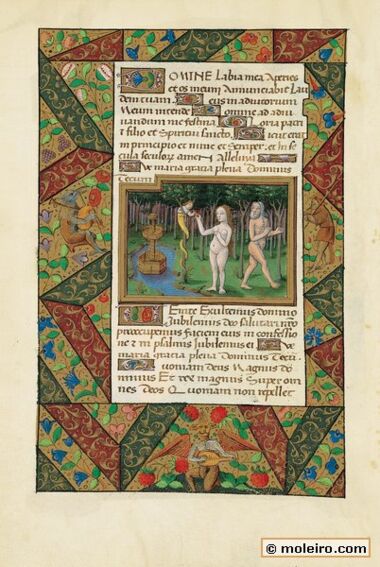 DOMINE Labia mea Aperies
et os meum Annunciabit Lau
dem tuam. Deus in adiutorium
Meum intende Domine ad adiu
vandum me festina Gloria patri
et filio et Spiritui sancto Sicut erat
in principio et nunc et Semper. et in se
cula seculorum amen Alleluia
Ave maria gracia plena Dominus
Tecum
Venite Exultemus domino
Jubilemus deo salutari nro
preoccupemus faciem eius in confessio
ne et in psalmis Jubilemus ei Ave
maria gracia plena Dominus Tecum
Quoniam deus Magnus do
minus Et rex magnus Super om
nes deos Quoniam non repellet
© moleiro.com